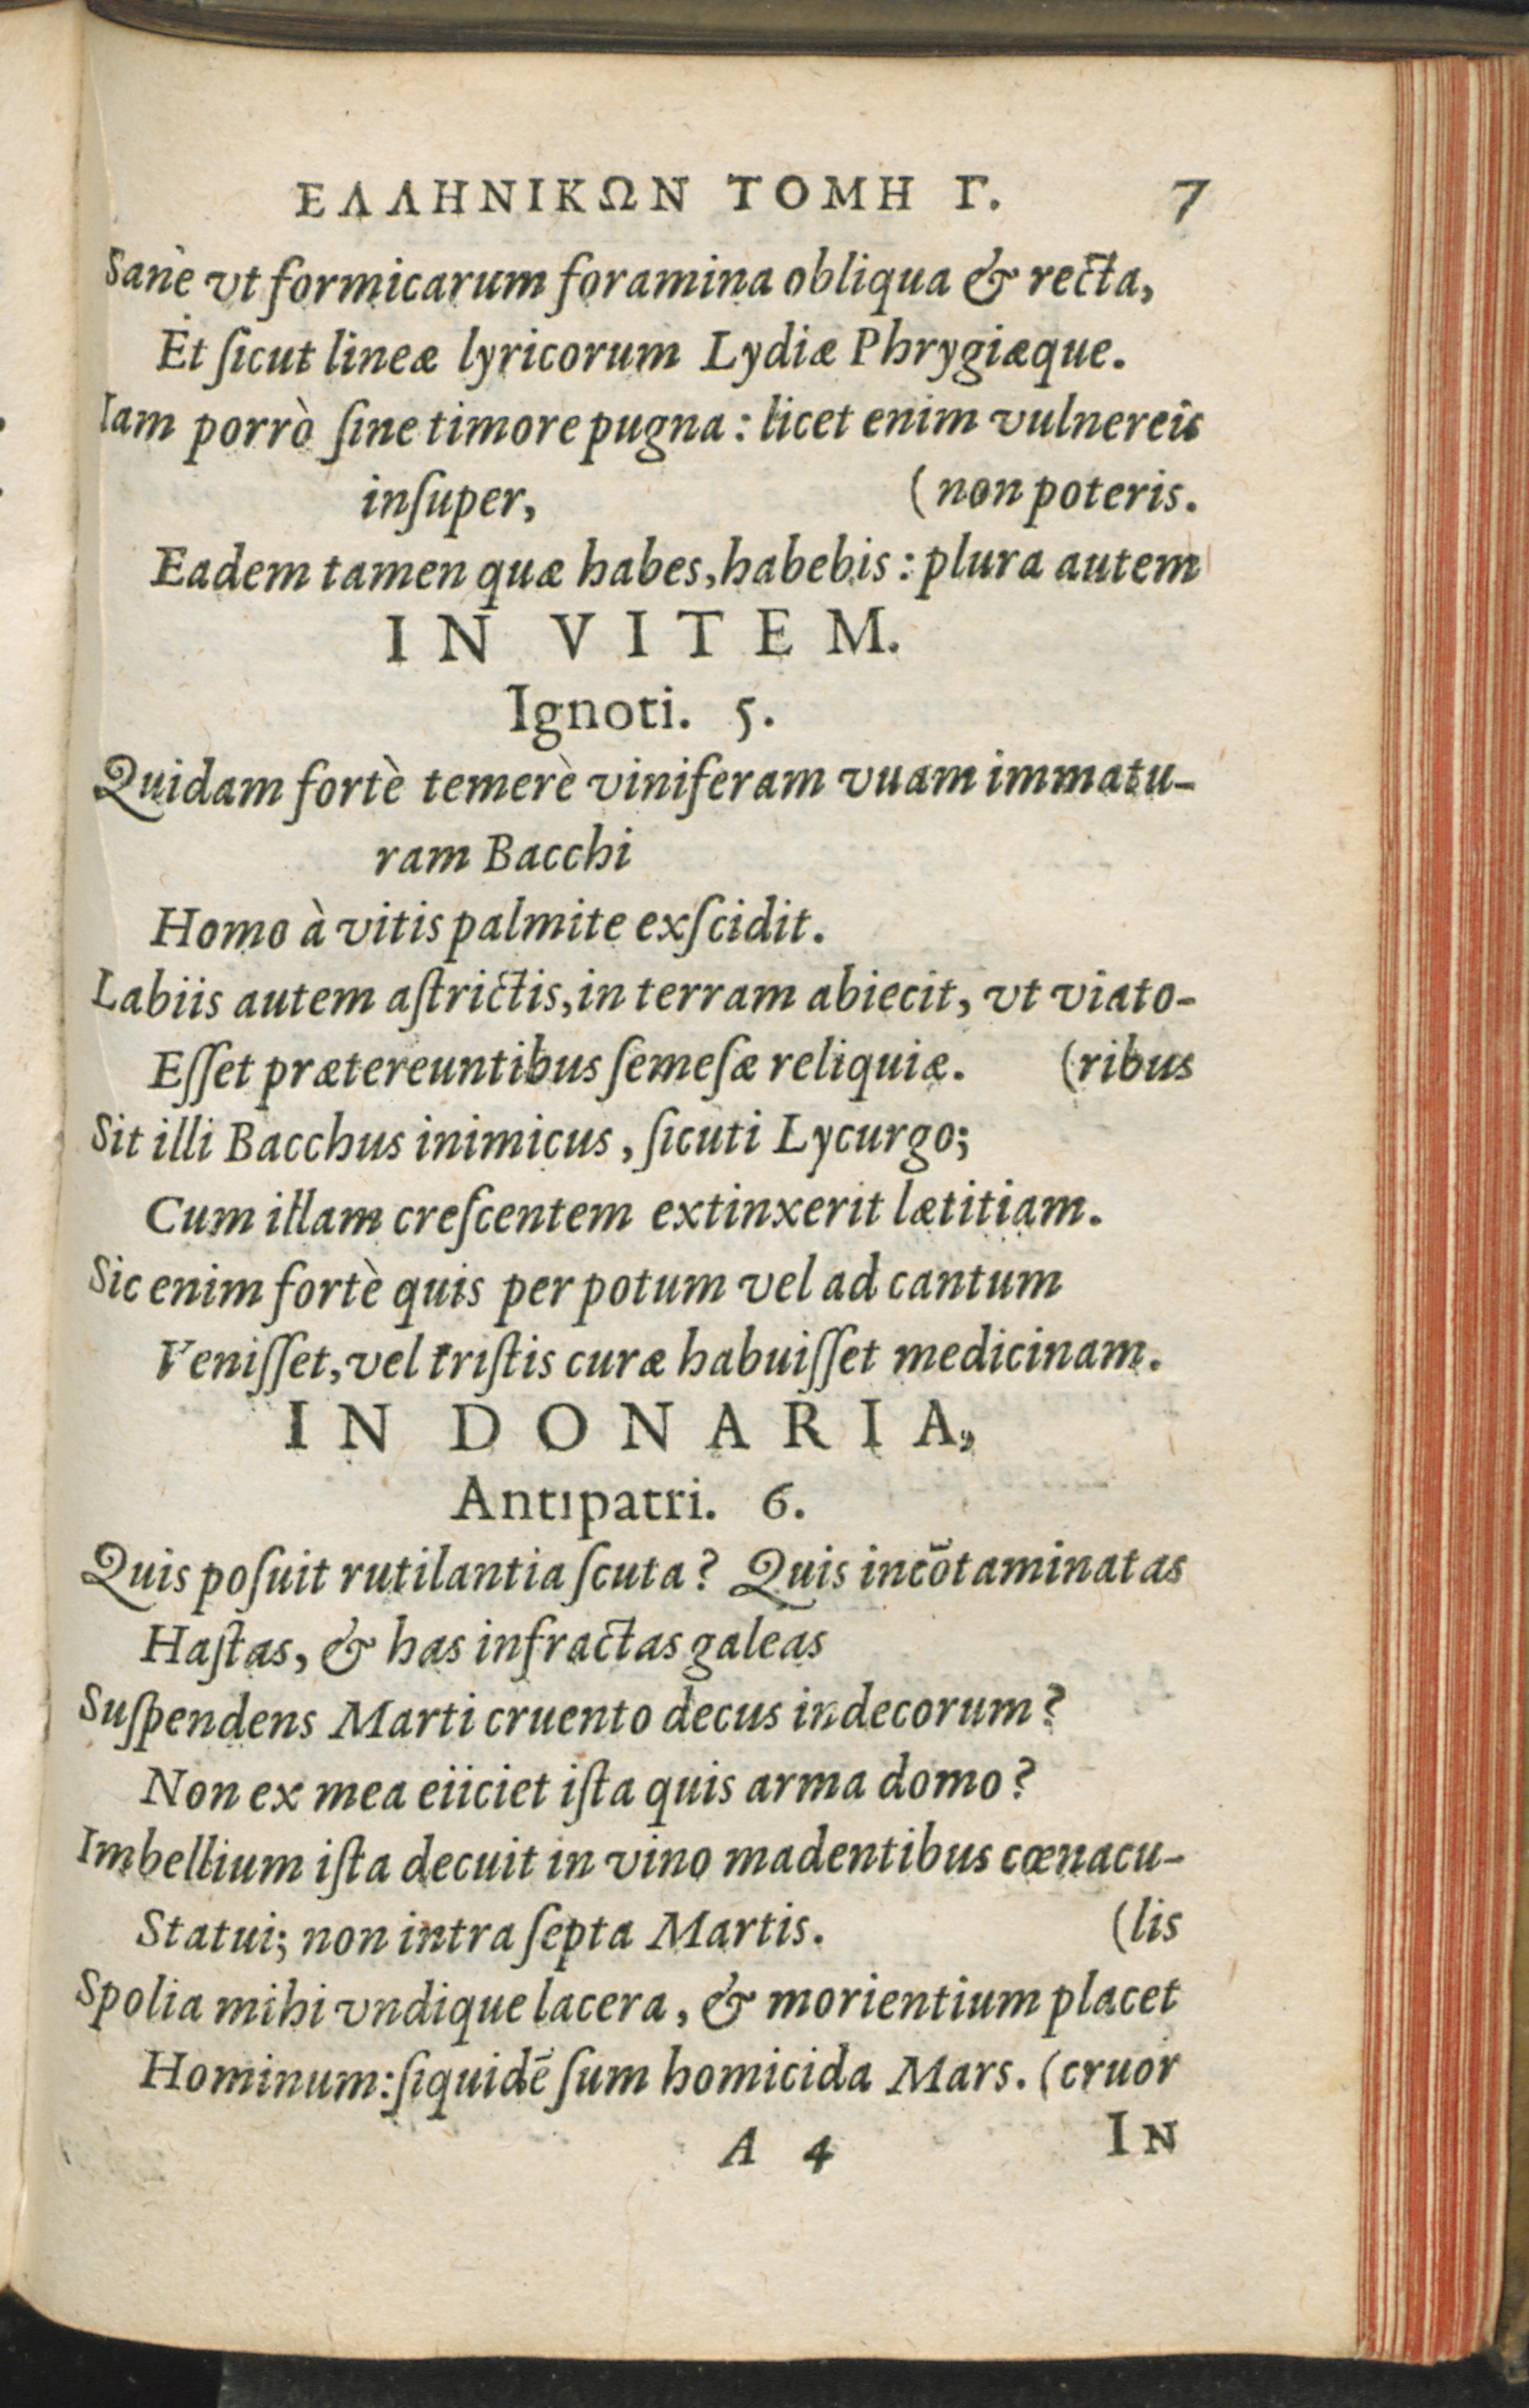 ΕΛΛΗΝΙΚΩΝ ΤΟΜΗ Γ. 7
Sanè vt formicarum foramina obliqua & recta,
Et ſicut lineæ lyricorum Lydiæ Phrygiæque.
Iam porrò ſine timore pugna: licet enim vulnereis
inſuper, (non poteris.
Eadem tamen quæ habes, habebis: plura autem
IN VITEM.
Ignoti. 5.
Quidam fortè temerè viniferam vuam immatu-
ram Bacchi
Homo à vitis palmite exſcidit.
Labiis autem aſtrictis, in terram abiecit, vt viato-
Eſſet prætereuntibus ſemeſæ reliquiæ. (ribus
Sit illi Bacchus inimicus, ſicuti Lycurgo;
Cum illam creſcentem extinxerit lætitiam.
Sic enim fortè quis per potum vel ad cantum
Veniſſet, vel triſtis curæ habuiſſet medicinam.
IN DONARIA,
Antipatri. 6.
Quis poſuit rutilantia ſcuta? Quis incōtaminatas
Haſtas, & has infractas galeas
Suſpendens Marti cruento decus indecorum?
Non ex mea eiiciet iſta quis arma domo?
Imbellium iſta decuit in vino madentibus cœnacu-
Statui; non intra ſepta Martis. (lis
Spolia mihi vndique lacera, & morientium placet
Hominum: ſiquidē ſum homicida Mars. (cruor
A 4 IN